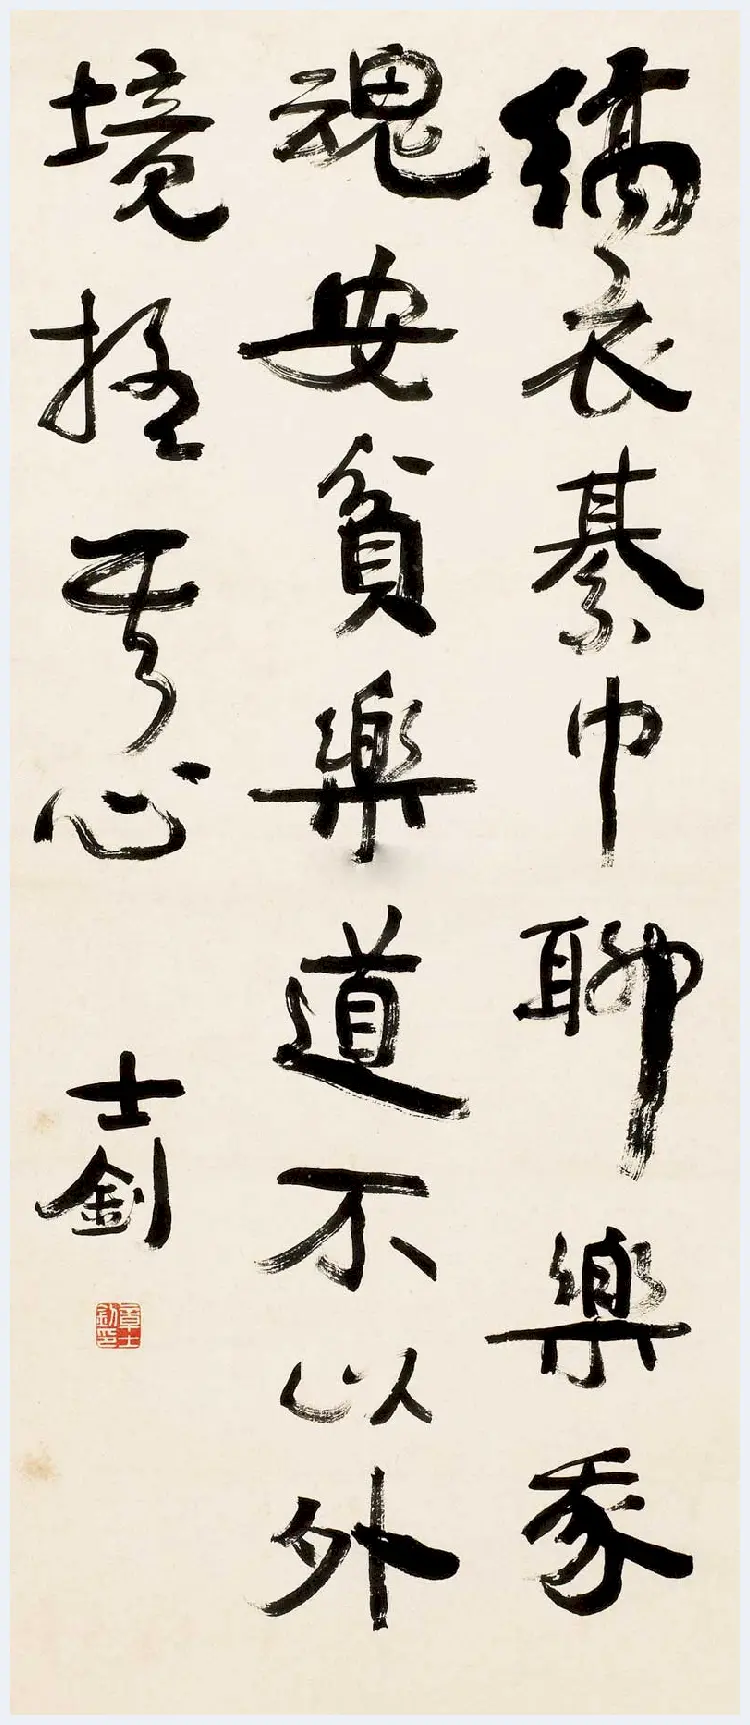 縞衣綦巾聊樂我
魂安貧樂道不以外
境搖其心
士釗
章士釗印